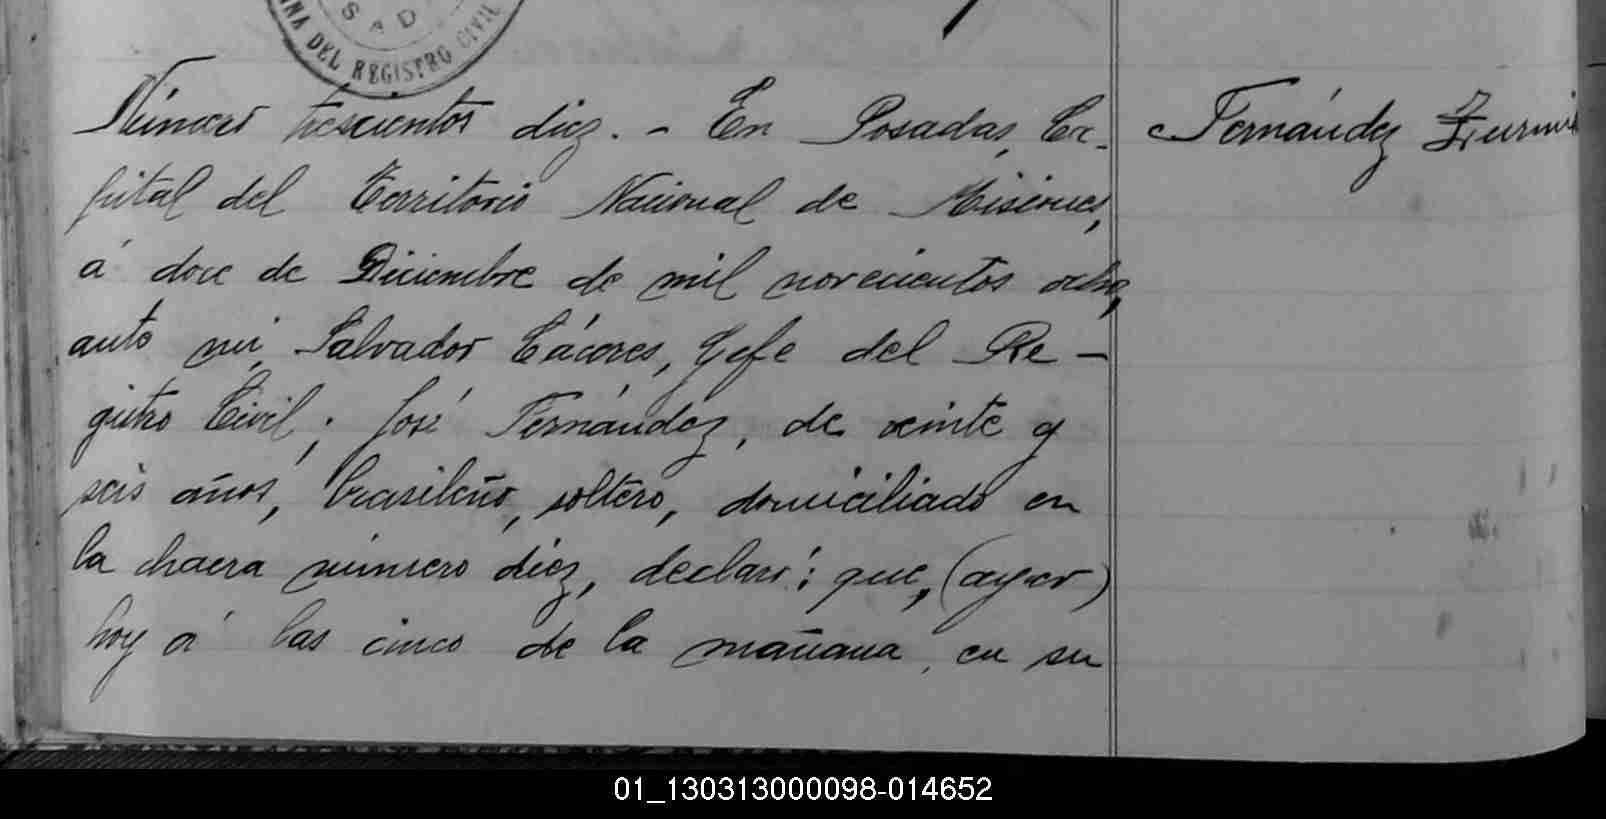 SAD
NA DEL REGISTRO CIVIL
Número trescientos diez. - En Posadas, Ca-
pital del Territorio Nacional de Misiones,
á doce de Diciembre de mil novecientos ocho,
ante mí, Salvador Cáceres, Gefe del Re-
gistro Civil; José Fernández, de veinte y
seis años, brasileño, soltero, domiciliado en
la chacra número diez, declaró: que, (ayer)
hoy á las cinco de la mañana, en su
Fernández
01_130313000098-014652